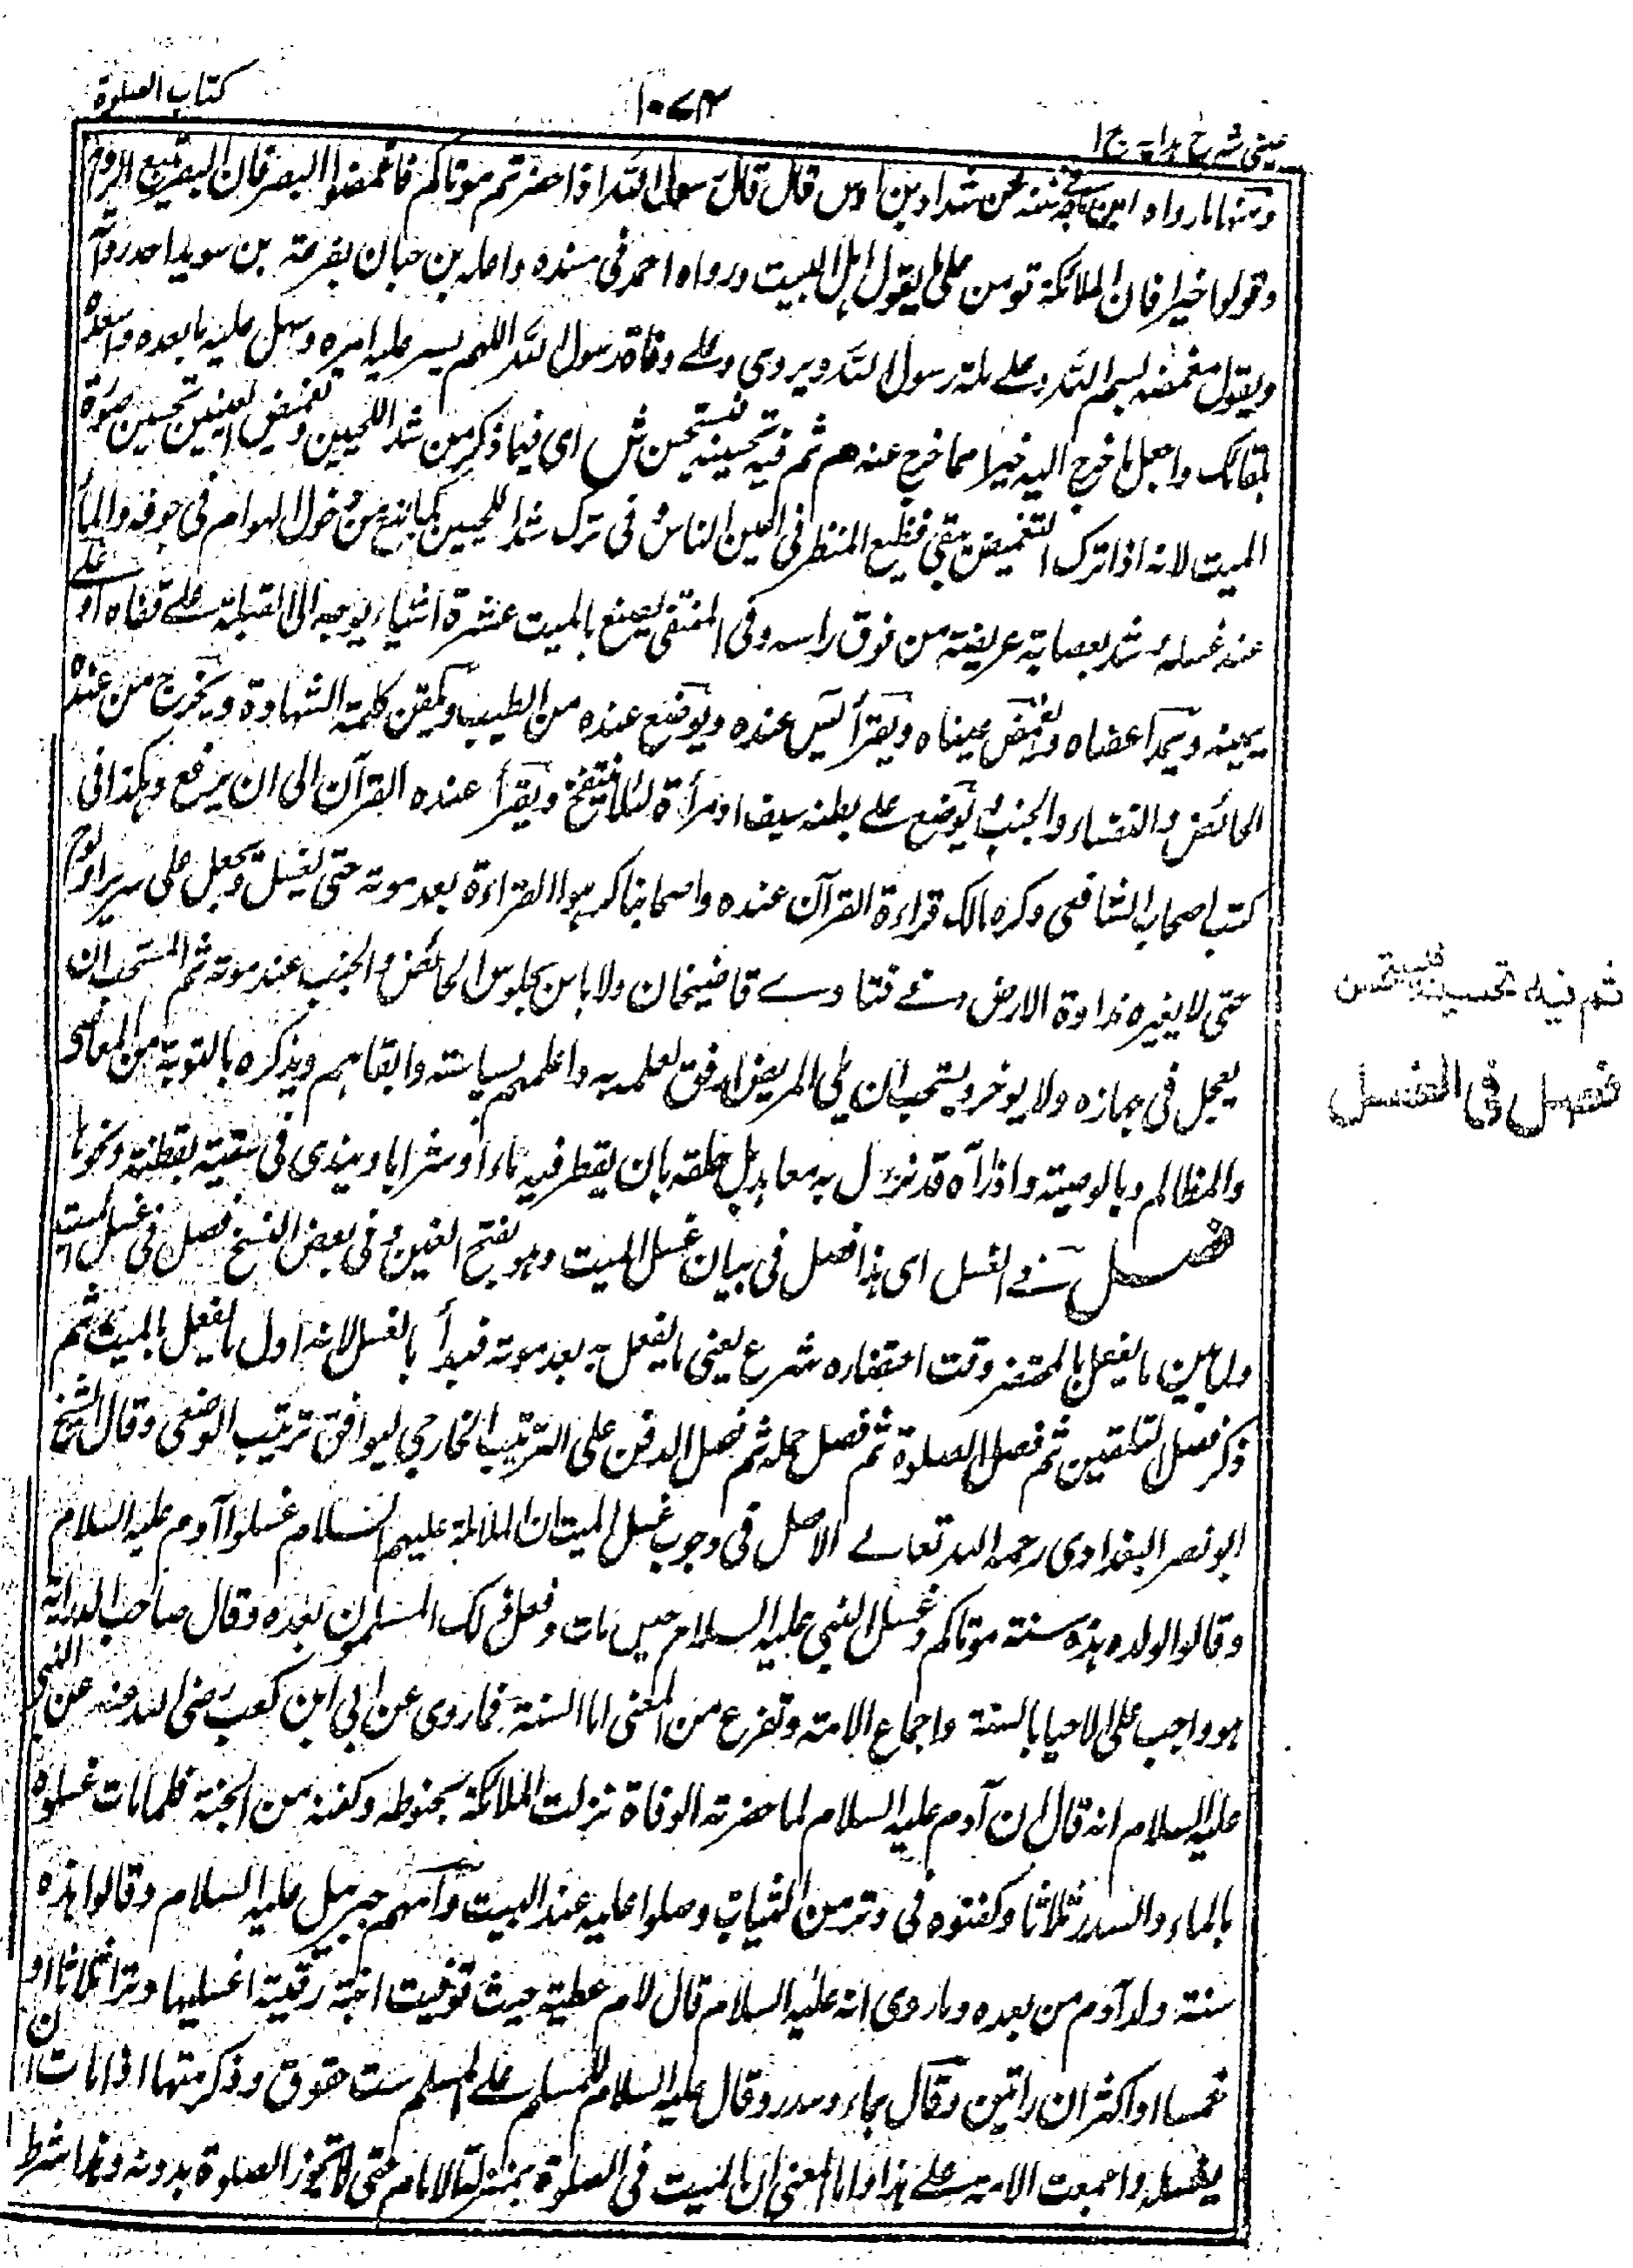 كتاب الصلوة
١٠٧٢
عينى شرح هدايه ج ا
ومنها ما رواه ابن ماجه فى سننه عن شداد بن اوس قال قال رسول الله اذا حضرتم موتاكم فاغمضوا البصر فان البصر يتبع الروح
وقولوا خيرا فان الملائكة تومن على ما يقول اهل البيت ورواه احمد فى مسنده واعله بن حبان بقزعة بن سويد احد رواته
ويقول مغمضه بسم الله وعلى ملة رسول الله ويروى وعلى وفاة رسول الله اللهم يسر عليه امره وسهل عليه ما بعده واسعده
بلقائك واجعل ما خرج اليه خيرا مما خرج عنه هم ثم فيه تحسينه فيستحسن ش اى فيما ذكر من شد اللحيين وتغميض العينين تحسين صورة
الميت لانه اذا ترك التغميض يبقى فظيع المنظر فى اعين الناس وفى ترك شد اللحيين لما يمنع من دخول الهوام فى جوفه والماء
عند غسله شد بعصابة عريضة من فوق راسه وفى المنتقى يصنع بالميت عشرة اشياء يوجه الى القبلة على قفاه او على
يمينه ويمد اعضاه ويغمض عيناه ويقرأ يس عنده ويوضع عنده من الطيب ويلقن كلمة الشهادة ويخرج من عنده
الحائض والنفساء والجنب ويوضع على بطنه سيف او مرأة لئلا ينتفخ ويقرأ عنده القرآن الى ان يرفع وهكذا فى
كتب اصحاب الشافعى وكره مالك قراءة القرآن عنده واصحابنا كرهوا القراءة بعد موته حتى يغسل ويجعل على سرير او لوح
حتى لا يغيره نداوة الارض وفى فتاوى قاضيخان ولا باس بجلوس الحائض والجنب عند موته ثم المستحب ان
يعجل فى جهازه ولا يوخر ويستحب ان يلى المريض ارفق لعلمه به واعلمهم بسياسته واتقاهم ويذكره بالتوبة من المعاصى
والمظالم وبالوصية واذا رآه قد نزل به معا يبل حلقه بان يقطر فيه ماء او شرابا ويندى فى شفتيه بقطنة ونحوها
فصل فى الغسل اى هذا فصل فى بيان غسل الميت وهو بفتح الغين وفى بعض النسخ فصل فى غسل الميت
ولما بين ما يفعل بالمحتضر وقت احتضاره شرع يعنى ما يفعل به بعد موته فبدأ بالغسل لانه اول ما يفعل بالميت ثم
ذكر فصل التكفين ثم فصل الصلوة ثم فصل حمله ثم فصل الدفن على الترتيب الخارجى ليوافق ترتيب الوضعى وقال الشيخ
ابو نصر البغدادى رحمه الله تعالى الاصل فى وجوب غسل الميت ان الملائكة عليهم السلام غسلوا آدم عليه السلام
وقالوا لولده هذه سنة موتاكم وغسل النبى عليه السلام حين مات وفعل ذلك المسلمون بعده وقال صاحب الدراية
هو واجب على الاحيا بالسنة واجماع الامة وتفرع من المعنى اما السنة فما روى عن ابى ابن كعب رضى الله عنه عن النبى
عليه السلام انه قال ان آدم عليه السلام لما حضرته الوفاة نزلت الملائكة بحنوطه وكفنه من الجنة فلما مات غسلوه
بالماء والسدر ثلاثا وكفنوه فى وتر من الثياب وصلوا عليه عند البيت وآمهم جبرئيل عليه السلام وقالوا هذه
سنة ولد آدم من بعده وما روى انه عليه السلام قال لام عطية حيث توفيت ابنته رقية اغسليها وترا ثلاثا او
خمسا او اكثر ان راتين وقال بماء وسدر وقال عليه السلام للمسلم على المسلم ست حقوق وذكر منها اذا مات ان
يغسله واجمعت الامة على هذا واما المعنى ان الميت فى الصلوة بمنزلة الامام حتى لا تجوز الصلوة بدونه وهذا شرط
ثم فيه تحسينه فيستحسن
فصل فى الغسل